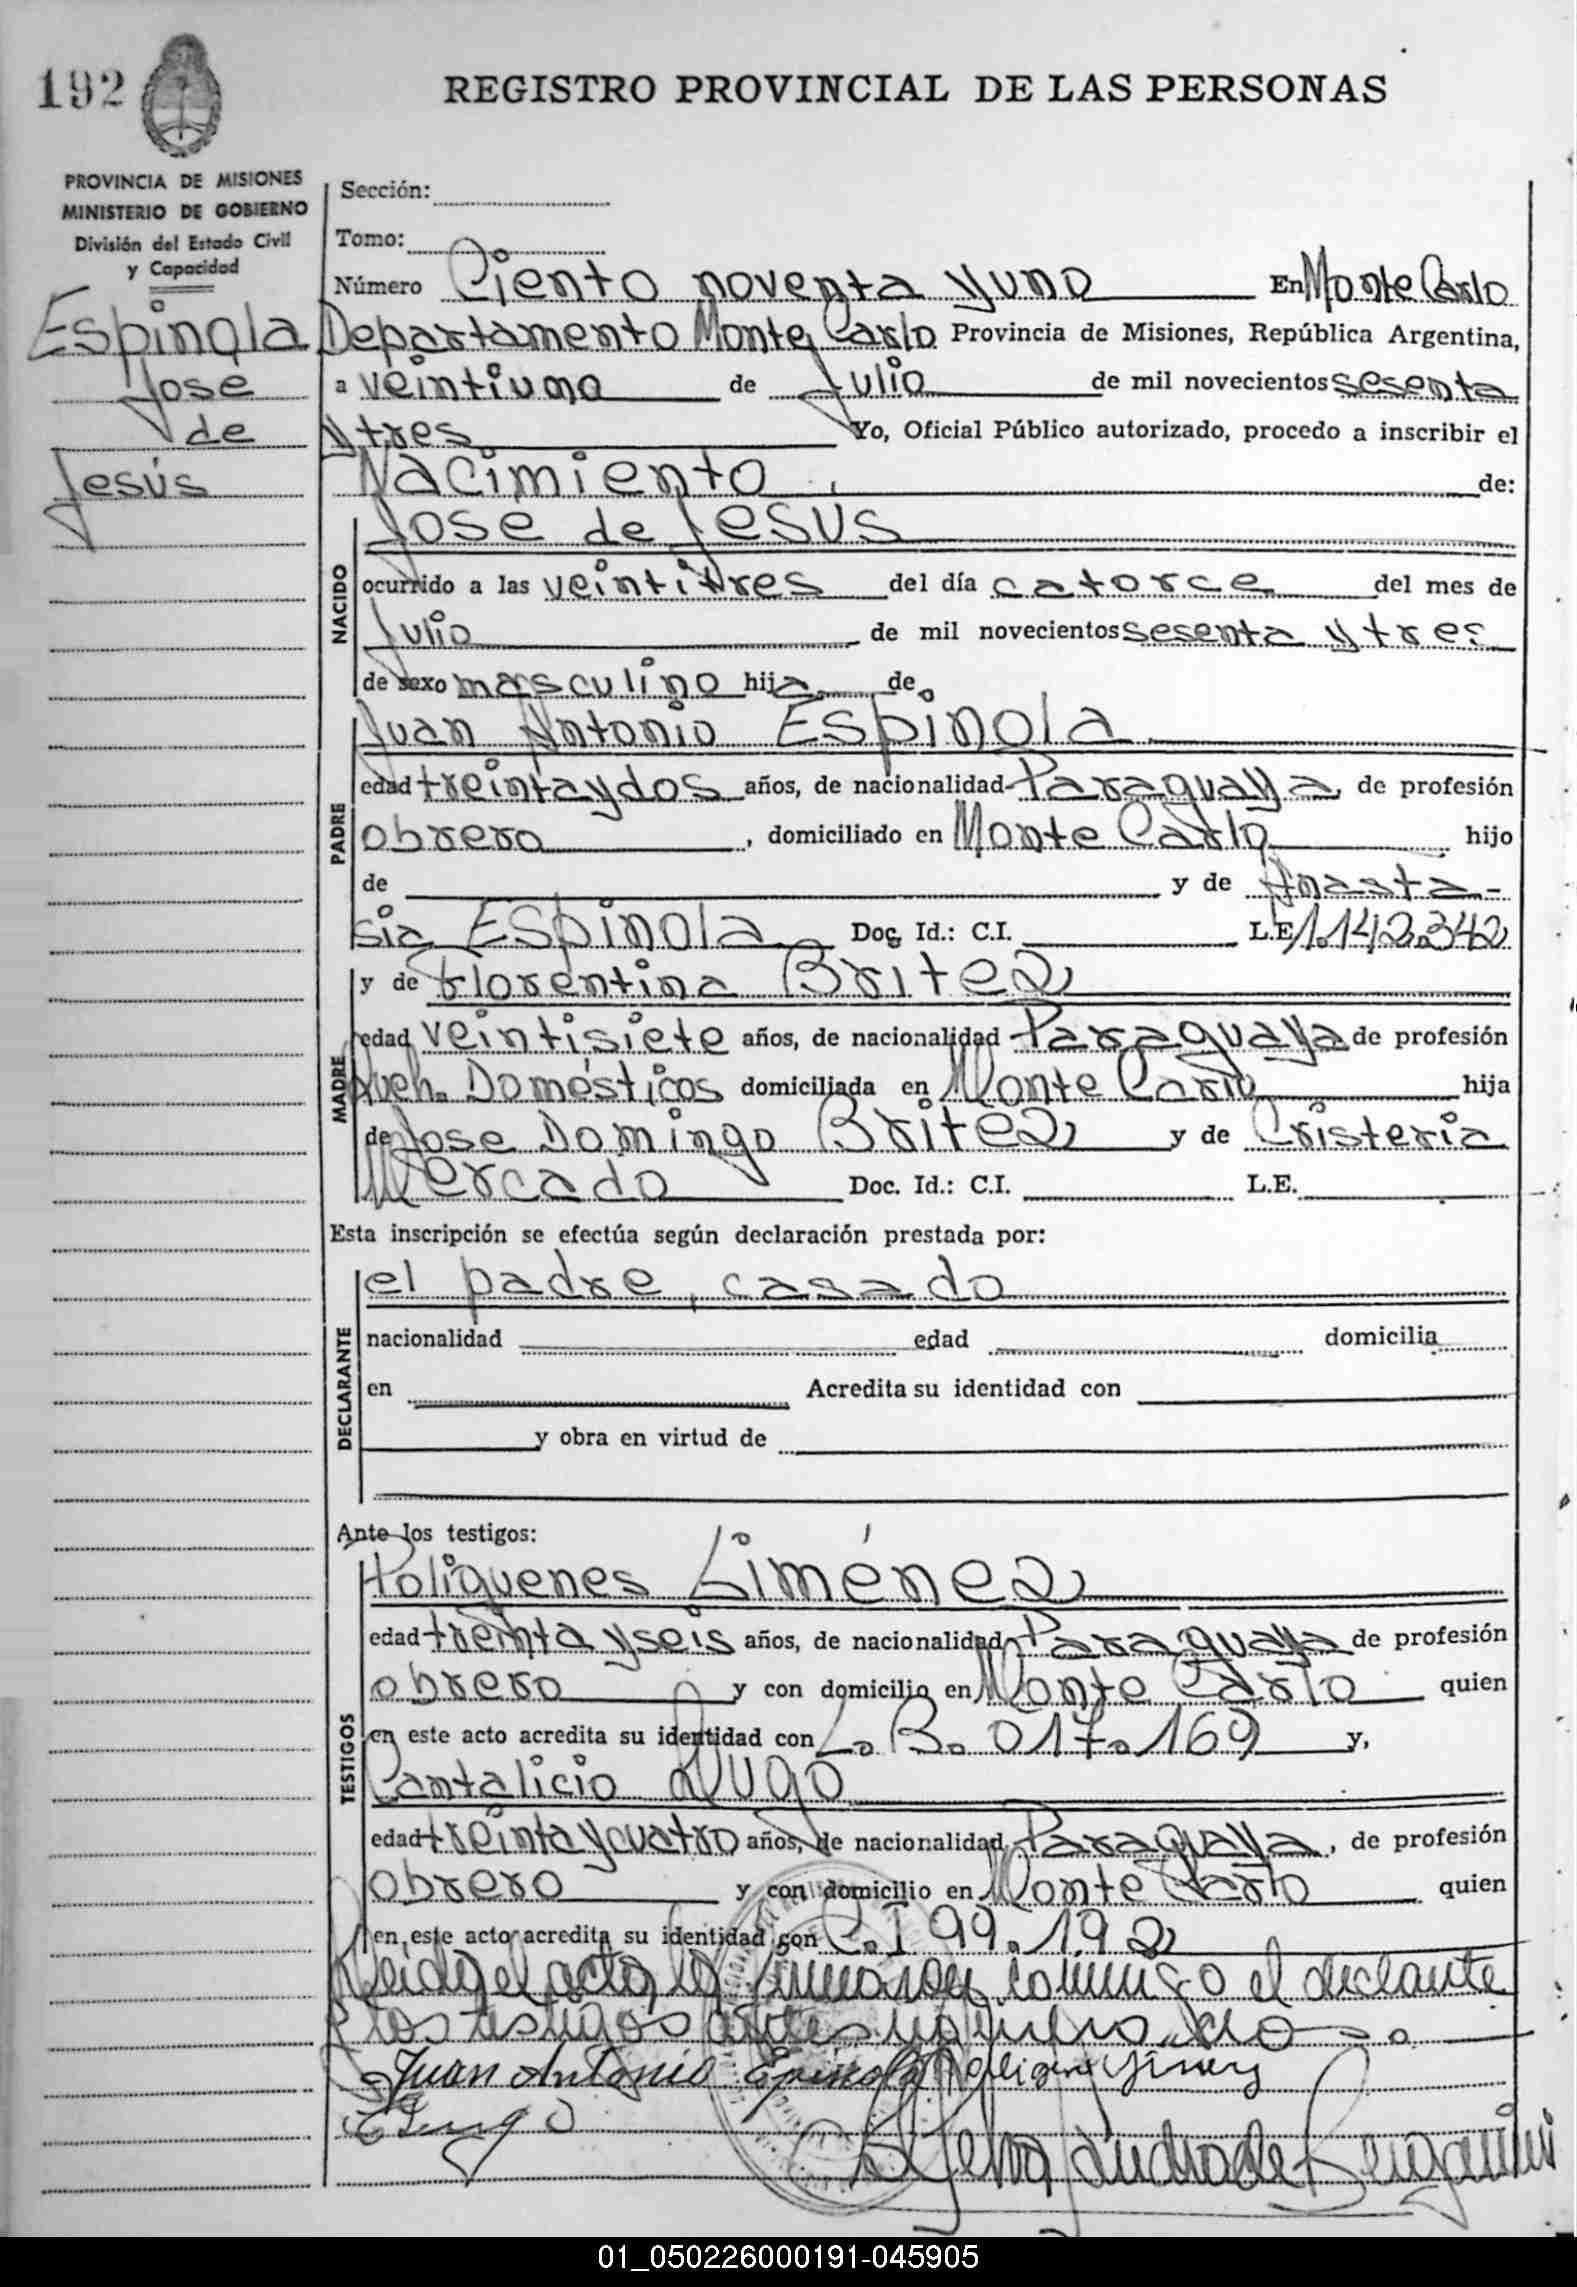 192
REGISTRO PROVINCIAL DE LAS PERSONAS
PROVINCIA DE MISIONES
MINISTERIO DE GOBIERNO
División del Estado Civil
y Capacidad
Espinola
Jose
de
Jesús
Sección:
Tomo:
Número Ciento noventa y uno En Monte Carlo
Departamento Monte Carlo Provincia de Misiones, República Argentina,
a veintiuno de Julio de mil novecientos sesenta
y tres Yo, Oficial Público autorizado, procedo a inscribir el
Nacimiento de:
NACIDO
Jose de Jesus
ocurrido a las veintitres del día catorce del mes de
Julio de mil novecientos sesenta y tres
de sexo masculino hijo de
PADRE
Juan Antonio Espinola
edad treinta y dos años, de nacionalidad Paraguaya, de profesión
obrero, domiciliado en Monte Carlo hijo
de y de Anasta-
sia Espinola Doc. Id.: C.I. L.E. 1.142.342
MADRE
y de Florentina Britez
edad veintisiete años, de nacionalidad Paraguaya de profesión
Queh. Domésticos domiciliada en Monte Carlo hija
de Jose Domingo Britez y de Cristeria
Mercado Doc. Id.: C.I. L.E.
Esta inscripción se efectúa según declaración prestada por:
DECLARANTE
el padre, casado
nacionalidad edad domicilia
en Acredita su identidad con
y obra en virtud de
Ante los testigos:
TESTIGOS
Poliguenes Giménez
edad treinta y seis años, de nacionalidad Paraguaya de profesión
obrero y con domicilio en Monte Carlo quien
en este acto acredita su identidad con L. B. 017.169 y,
Cantalicio Lugo
edad treinta y cuatro años, de nacionalidad Paraguaya, de profesión
obrero y con domicilio en Monte Carlo quien
en este acto acredita su identidad con C.I 99.192
Leida el acta la firmaron conmigo el declante
y los testigos antes
Juan Antonio Espinola
01_050226000191-045905